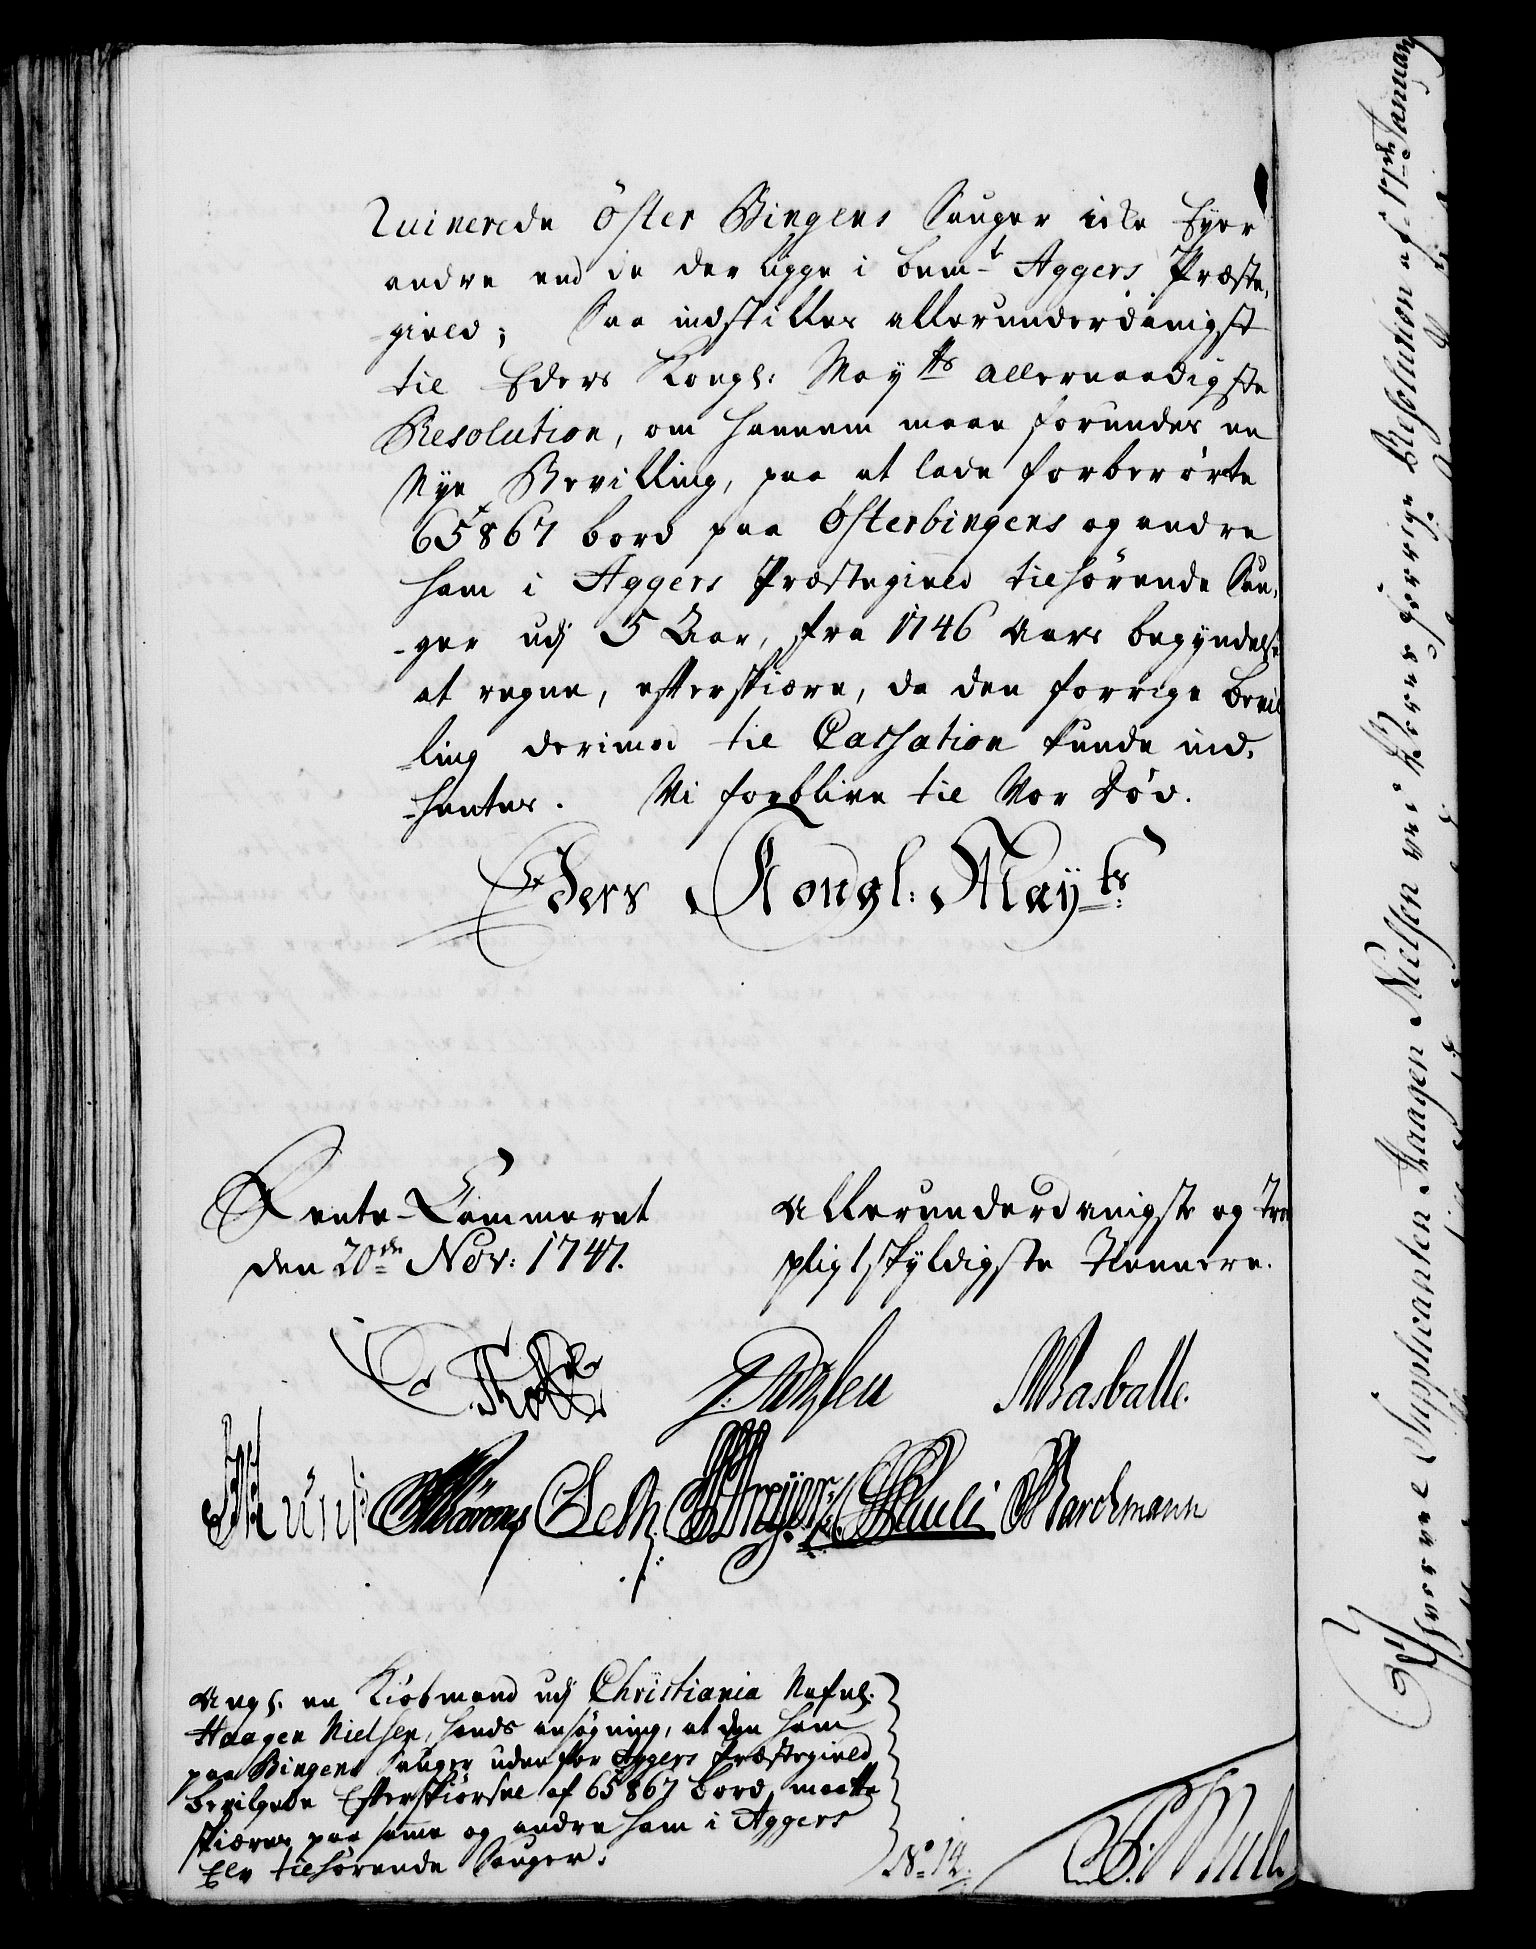 ruinerede Öster Bingens Sauger icke Eyer
andre end de der ligge i bem.t Aggers Præste,
-gield; Saa indstilles allerunderdanigst
til Eders Kongl: May.ts allernaadigste
Resolution, om hannem maae forundes en
Nye Bevilling, paa at lade forberørte
65867 bord paa Østerbingens og andre
ham i Aggers Præstegield tilhørende Sau,
-ger udj 5 Aar, fra 1746 Aars begyndelse
at regne, efterskiære, da den forrige bevil
-ling derimod til Cassation kunde ind,
-hentes. Vi forblive til Vor Død.
Eders Kongl: May.ts
Rente-Cammeret
den 20de Nov: 1747.
Allerunderdanigste og troe
pligtskyldigste Tiennere.
Wasballe.
Pauli Marckmann
Angl. en Kiøbmand udj Christiania Nafnl.
Haagen Nielsen, hands ansøgning, at den ham
paa Bingens Sauger uden for Aggers Præstegield
bevilgede Efterskiørsel af 65867 bord, maatte
skiæres paa samme og andre ham i Aggers
Elv tilhørende Sauger.
No 14.
Efter Supplicanten Haagen Nielsen ved Deres forrige Resolution af 11te January